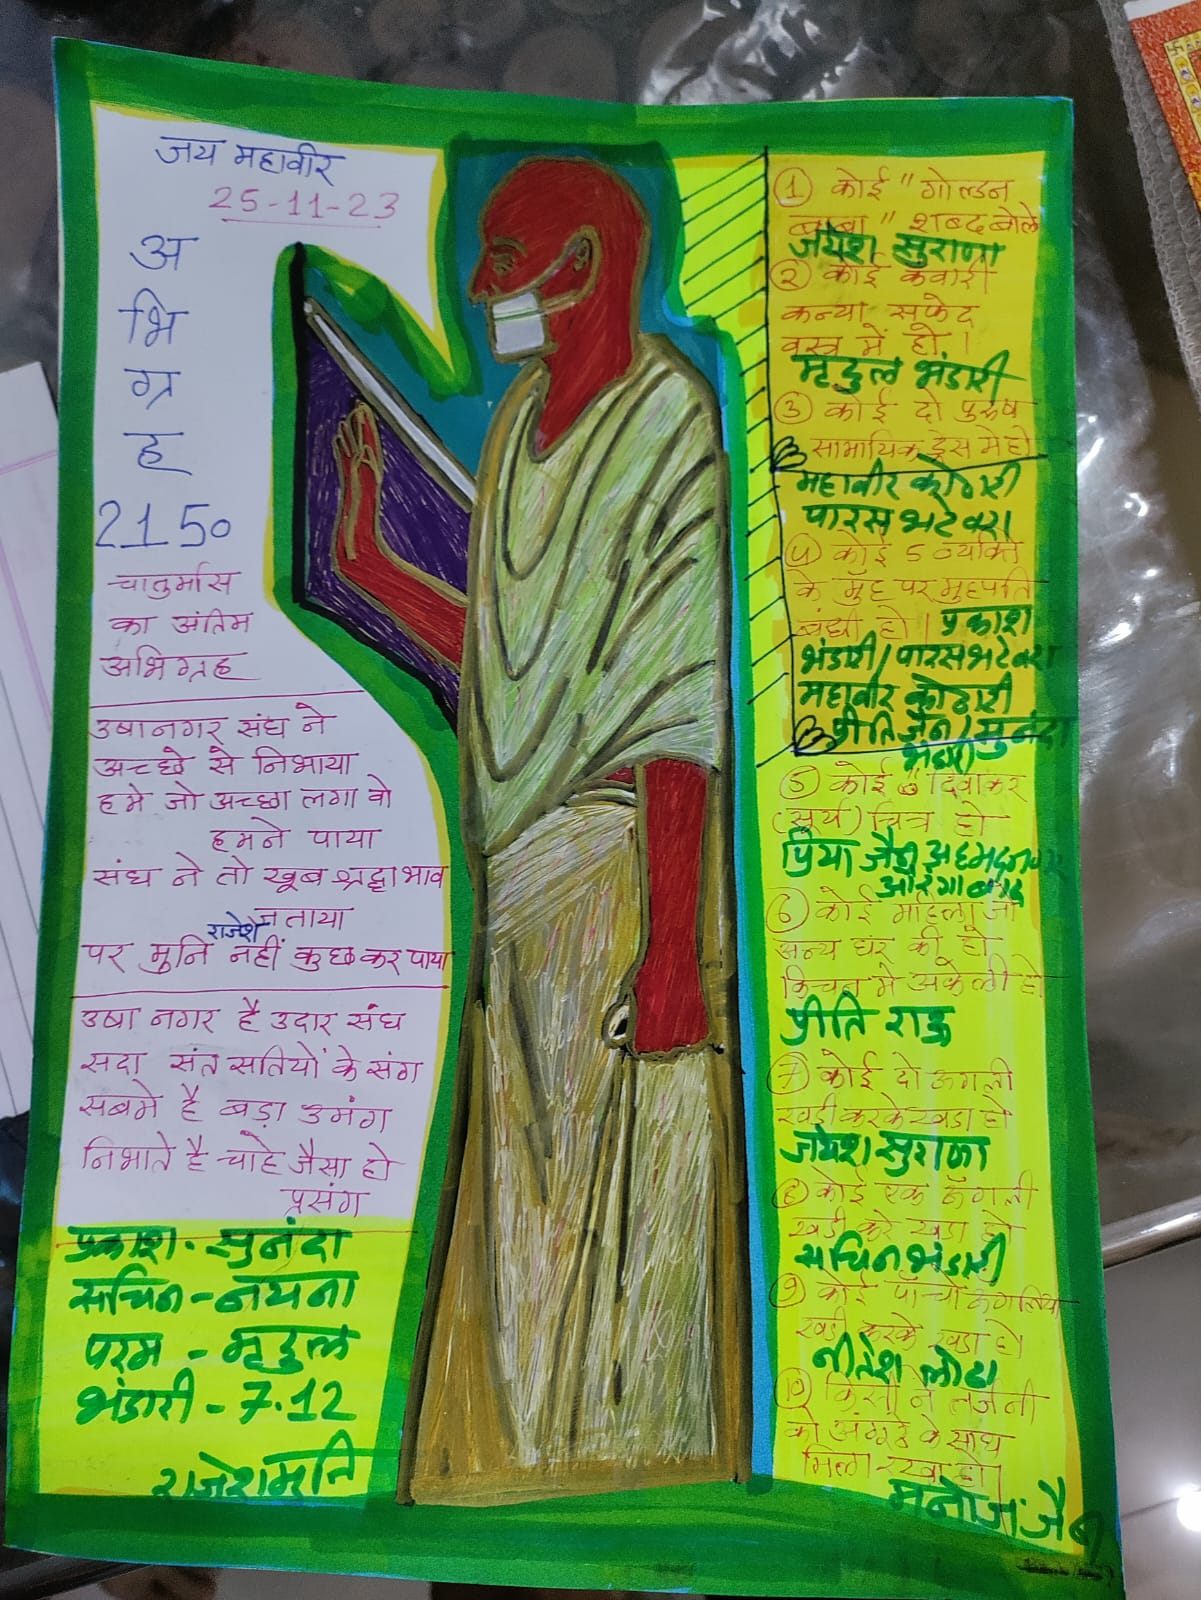 जय महावीर
25-11-23
अ
भि
ग्र
ह
2150
चातुर्मास
का अंतिम
अभिग्रह
उषानगर संघ ने
अच्छे से निभाया
हमे जो अच्छा लगा वो
हमने पाया
संघ ने तो खूब श्रद्धा भाव
जताया
राजेश
पर मुनि नहीं कुछ कर पाया
उषा नगर है उदार संघ
सदा संत सतियों के संग
सबमे है बड़ा उमंग
निभाते है चाहे जैसा हो
प्रसंग
प्रकाश - सुनंदा
सचिन - नयना
परम - मृदुल
भंडारी - 7.12
राजेशमुनि
① कोई "गोल्डन
बाबा" शब्द बोले
जयेश सुराणा
② कोई कवारी
कन्या सफेद
वस्त्र में हो।
मृदुल भंडारी
③ कोई दो पुरुष
सामायिक ड्रेस मे हो
महावीर कोठारी
पारस भटेवरा
④ कोई 5 व्यक्ति
के मुह पर मुहपति
बंधी हो। प्रकाश
भंडारी/पारस भटेवरा
महावीर कोठारी
प्रीति जैन/सुनंदा
भंडारी
⑤ कोई दिवाकर
(सूर्य) चित्र हो
प्रिया जैन अहमदनगर
औरंगाबाद
⑥ कोई महिला जो
अन्य घर की हो
किचन मे अकेली हो
प्रीति राऊ
⑦ कोई दो ऊगली
खडी करके खडा हो
जयेश सुराणा
⑧ कोई एक ऊँगली
खडी करे खडा हो
सचिन भंडारी
⑨ कोई पाँचो ऊगलिया
खडी करके खडा हो
नीतेश लोढा
⑩ किसी ने तर्जनी
को अंगूठे के साथ
मिला रखा हो।
मनोज जैन